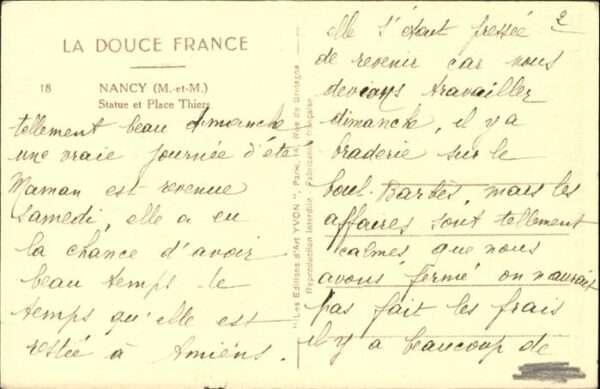 LA DOUCE FRANCE
18 NANCY (M.-et-M.)
Statue et Place Thiers
tellement beau dimanche
une vraie journée d'été
Maman est revenue
samedi, elle a eu
la chance d'avoir
beau temps le
temps qu'elle est
restée à Amiens.
"Les Editions d'Art YVON", Paris, 15, Rue de Bretagne
Reproduction Interdite - Fabrication française
2
elle s'était pressée
de revenir car nous
devions travailler
dimanche, il y a
braderie sur le
boul. Barbès, mais les
affaires sont tellement
calmes que nous
avons fermé on n'aurait
pas fait les frais
il y a beaucoup de